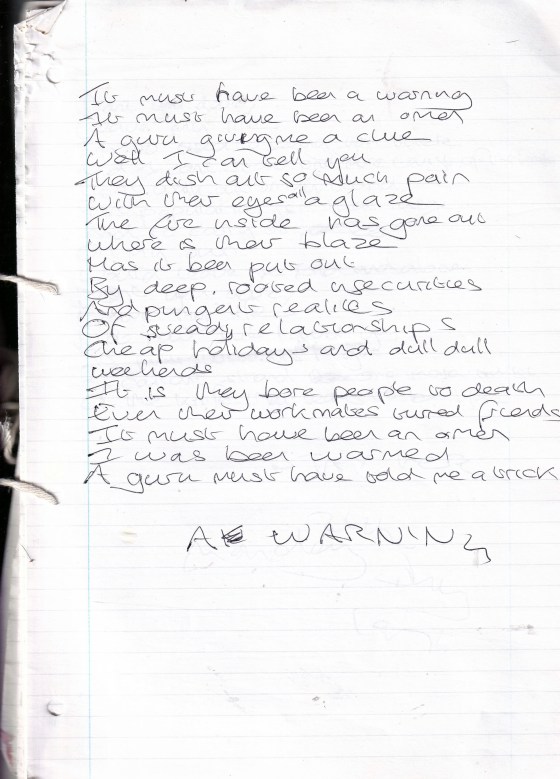 It must have been a warning
It must have been an omen
A guru giving me a clue
Well I can tell you
They dish out so much pain
With their eyes all a glaze
The fire inside has gone out
Where is their blaze
Has it been put out
By deep, rooted insecurities
And pungent realities
Of steady relationships
Cheap holidays and dull dull
weekends
It is they bore people to death
Even their workmates turned friends
It must have been an omen
I was been warned
A guru must have told me a trick
A WARNING